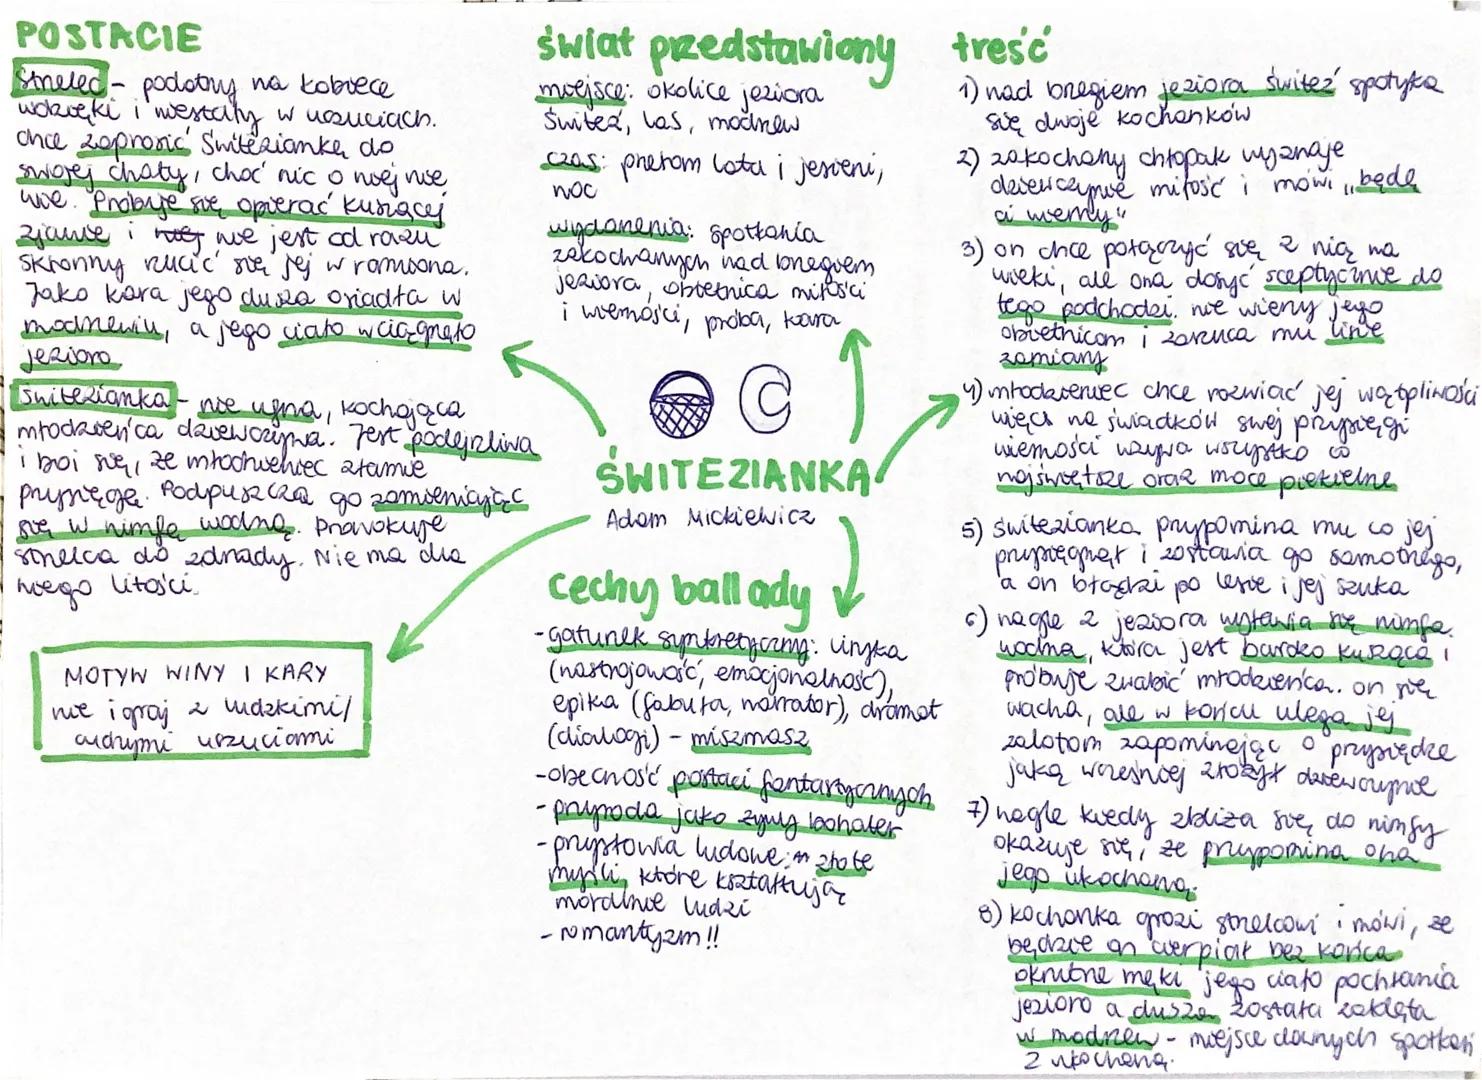 POSTACIE
Strzelec - podatny na kobiece
wdzięki i niestały w uczuciach.
chce zaprosić Świteziankę do
swojej chaty, choć nic o niej nie
wie. Próbuje się opierać kuszącej
zjawie i nie jest od razu
skłonny rzucić się jej w ramiona.
Jako kara jego dusza osiadła w
modrzewiu, a jego ciało wciągnęło
jezioro
Świtezianka - nie ufna, kochająca
młodzieńca dziewczyna. Jest podejrzliwa
i boi się, że młodzieniec złamie
przysięgę. Podpuszcza go zamieniając
się w nimfę wodną. Prowokuje
strzelca do zdrady. Nie ma dla
niego litości.
MOTYW WINY I KARY
nie igraj z ludzkimi/
cudzymi uczuciami
świat przedstawiony
miejsce: okolice jeziora
Świteź, las, modrzew
czas: przełom lata i jesieni,
noc
wydarzenia: spotkania
zakochanych nad brzegiem
jeziora, obietnica miłości
i wierności, próba, kara
C
ŚWITEZIANKA
Adam Mickiewicz
cechy ballady
- gatunek synkretyczny: liryka
(nastrojowość, emocjonalność),
epika (fabuła, narrator), dramat
(dialogi) - miszmasz
- obecność postaci fantastycznych
- przyroda jako żywy bohater
- przysłowia ludowe: złote
myśli, które kształtują
moralnie ludzi
- romantyzm!!
treść
1) nad brzegiem jeziora Świteź spotyka
się dwoje kochanków
2) zakochany chłopak wyznaje
dziewczynie miłość i mówi „będę
ci wierny"
3) on chce połączyć się z nią na
wieki, ale ona dosyć sceptycznie do
tego podchodzi. nie wierzy jego
obietnicom i zarzuca mu inne
zamiary
4) młodzieniec chce rozwiać jej wątpliwości
więc na świadków swej przysięgi
wierności wzywa wszystko co
najświętsze oraz moce piekielne
5) Świtezianka przypomina mu co jej
przysięgnął i zostawia go samotnego,
a on błądzi po lesie i jej szuka
6) nagle z jeziora wyławia się nimfa
wodna, która jest bardzo kusząca i
próbuje zwabić młodzieńca. on się
wacha, ale w końcu ulega jej
zalotom zapominając o przysiędze
jaką wcześniej złożył dziewczynie
7) nagle kiedy zbliża się do nimfy
okazuje się, że przypomina ona
jego ukochaną.
8) kochanka grozi strzelcowi i mówi, że
będzie on cierpiał bez końca
okrutne męki jego ciało pochłania
jezioro a dusza została zaklęta
w modrzew - miejsce dawnych spotkań
z ukochaną.